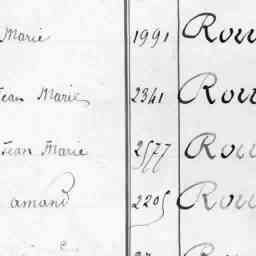 Marie 1991 Rou
Jean Marie 2341 Rou
Jean Marie 2577 Rou
amand 2205 Rou